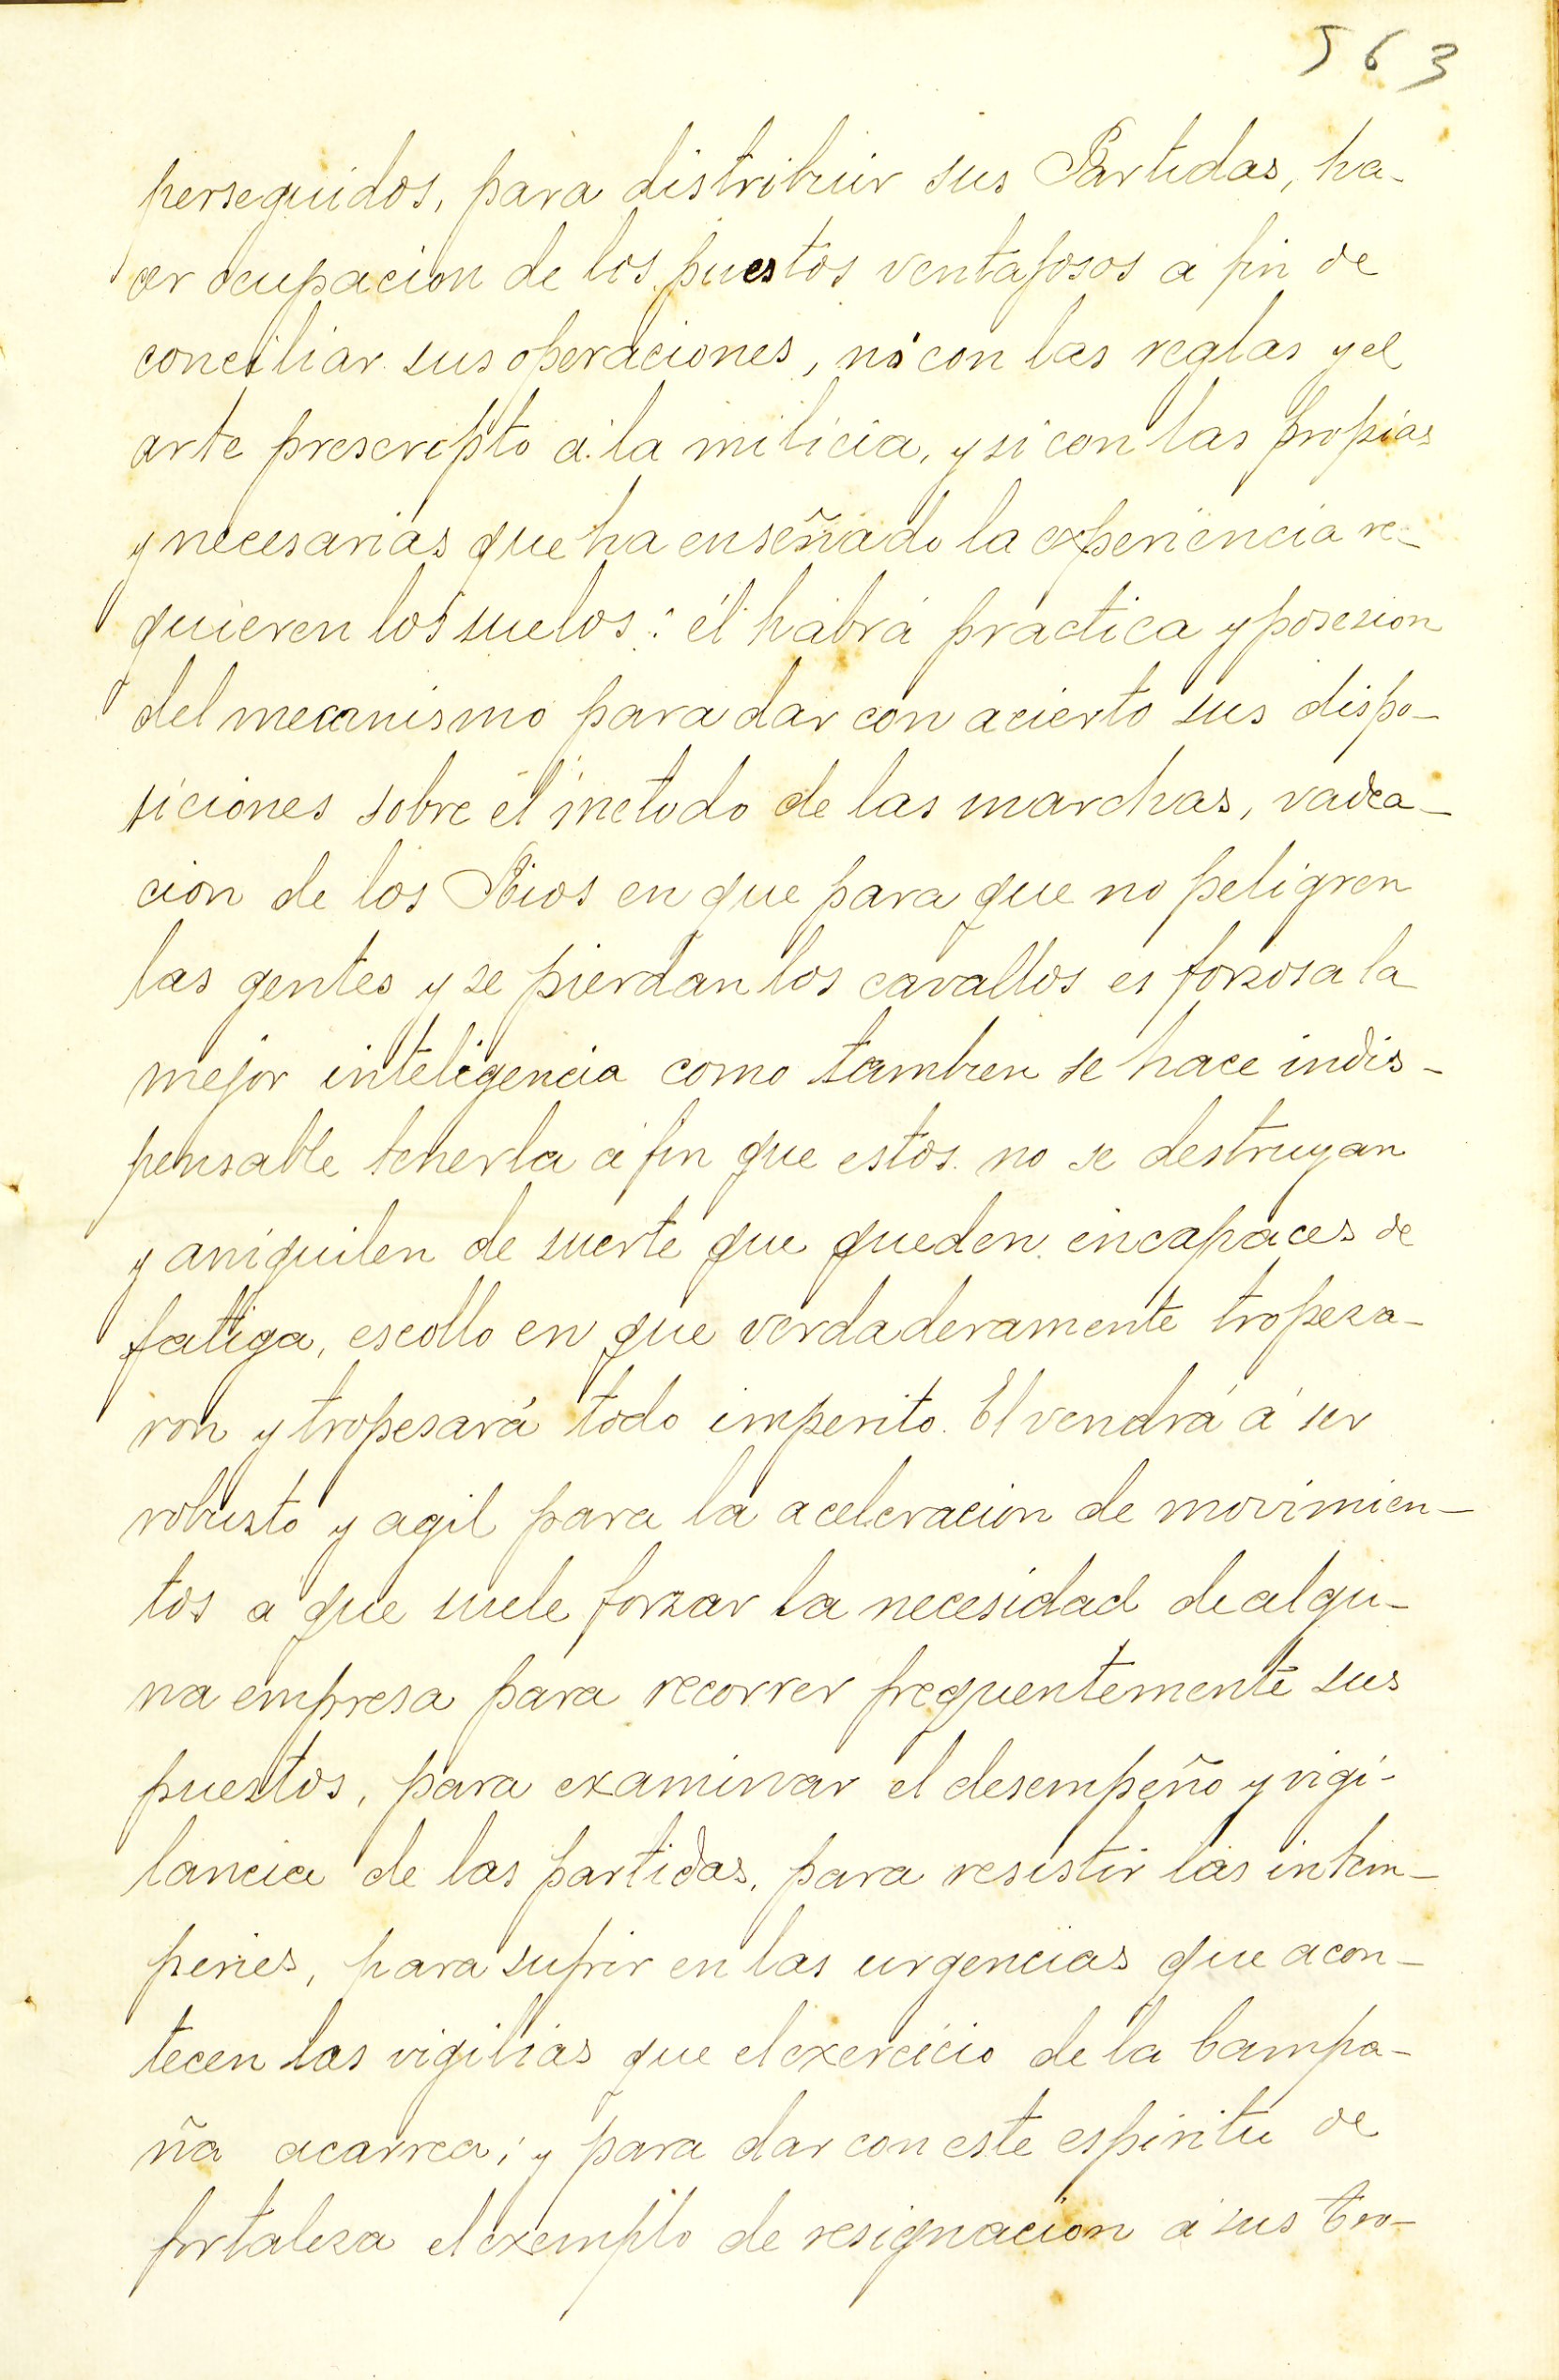 563
perseguidos, para distribuir sus Partidas, ha-
cer ocupacion de los puestos ventajosos á fin de
conciliar sus operaciones, nó con las reglas y el
arte prescripto á la milicia, y si con las propias
y necesarias que ha enseñado la experiencia re-
quieren los suelos: él habrá practica y posesion
del mecanismo para dar con acierto sus dispo-
siciones sobre el metodo de las marchas, vadea-
cion de los Rios en que para que no peligren
las gentes y se pierdan los cavallos es forzosa la
mejor inteligencia como tambien se hace indis-
pensable tenerla á fin que estos no se destruyan
y aniquilen de suerte que queden incapaces de
fatiga, escollo en que verdaderamente tropeza-
ron y tropesará todo imperito. El vendrá á ser
robusto y agil para la aceleracion de movimien-
tos á que suele forzar la necesidad de algu-
na empresa para recorrer frequentemente sus
puestos, para examinar el desempeño y vigi-
lancia de las partidas, para resistir las intem-
peries, para sufrir en las urgencias que acon-
tecen las vigilias que el exercicio de la Campa-
ña acarrea; y para dar con este espiritu de
fortaleza el exemplo de resignacion á sus tro-